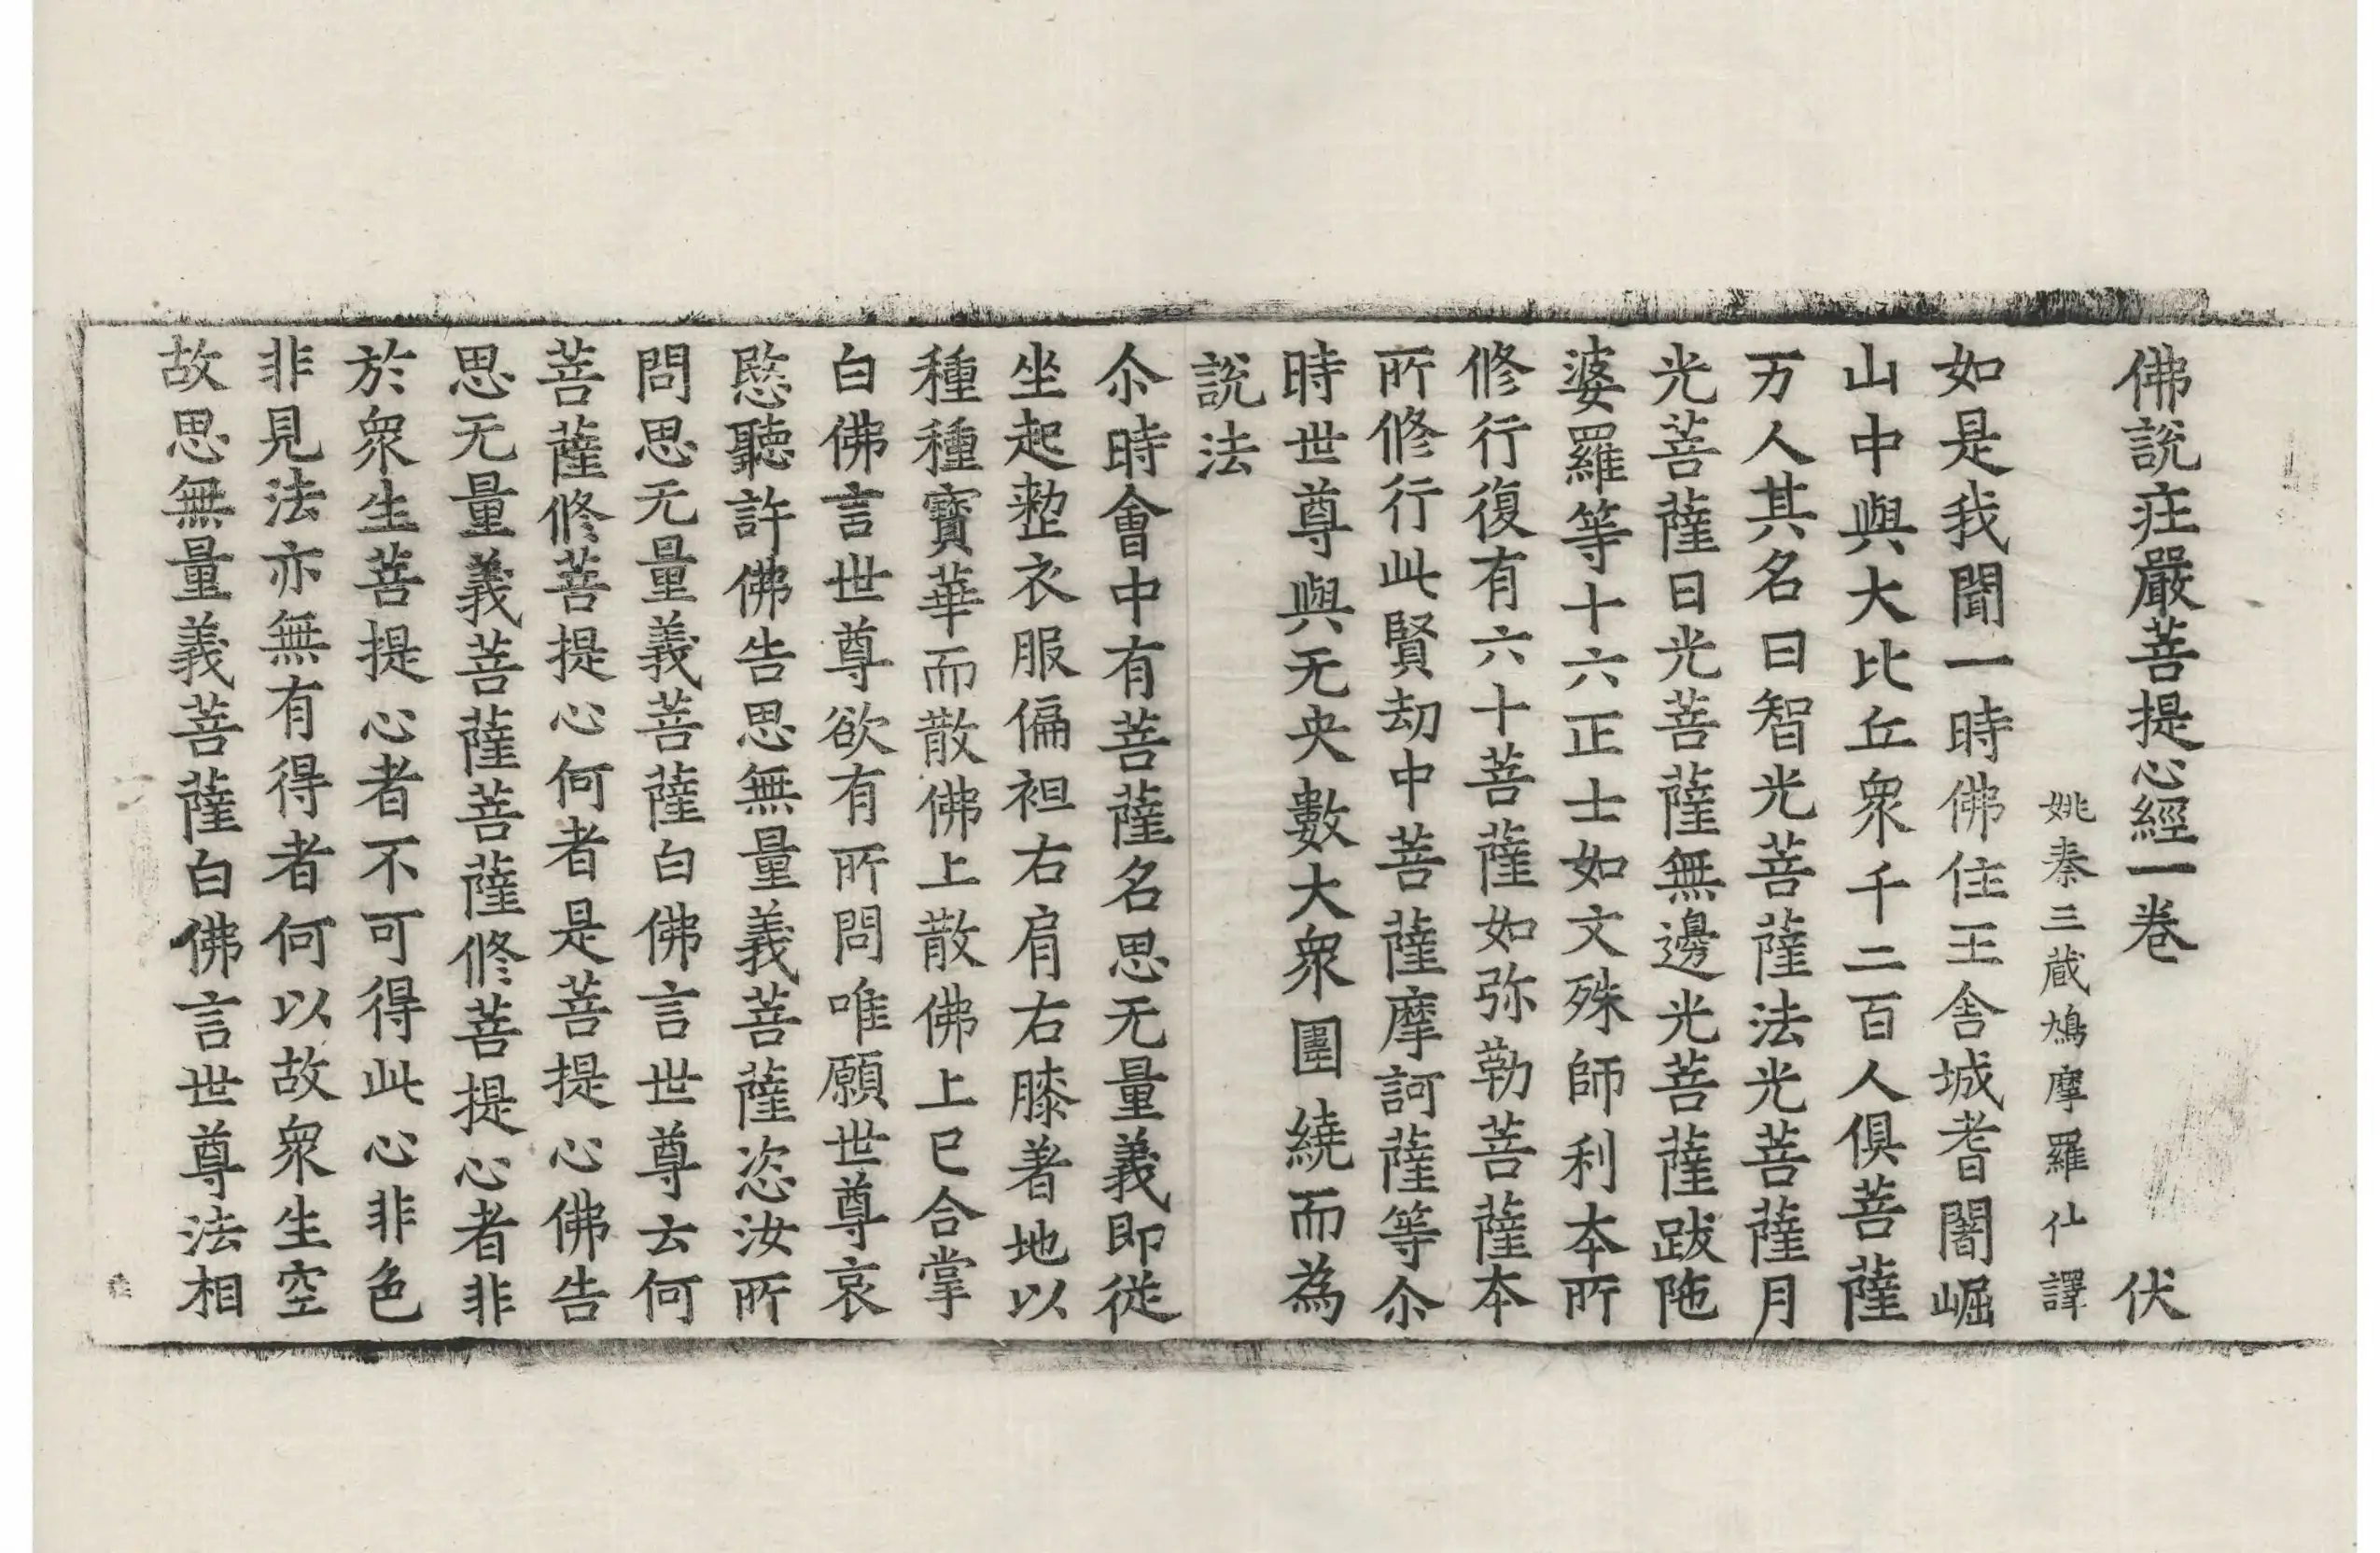 佛說疰嚴菩提心經一卷 伏
姚秦三蔵鳩摩羅什譯
如是我聞一時佛住王舍城耆闍崛
山中與大比丘衆千二百人俱菩薩
万人其名曰智光菩薩法光菩薩月
光菩薩日光菩薩無邊光菩薩跋陁
婆羅等十六正士如文殊師利本所
修行復有六十菩薩如弥勒菩薩本
所修行此賢劫中菩薩摩訶薩等尒
時世尊與无央數大衆圍繞而為
說法
尒時會中有菩薩名思无量義即從
坐起整衣服偏袒右肩右膝著地以
種種寶華而散佛上散佛上已合掌
白佛言世尊欲有所問唯願世尊哀
愍聽許佛告思無量義菩薩恣汝所
問思无量義菩薩白佛言世尊云何
菩薩修菩提心何者是菩提心佛告
思无量義菩薩菩薩修菩提心者非
於衆生菩提心者不可得此心非色
非見法亦無有得者何以故衆生空
故思無量義菩薩白佛言世尊法相